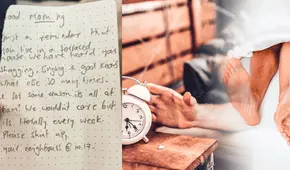 Good Morning
Just a reminder that
you live in a terraced
house. We have heard you
shagging, singing & good knows
what else so many times.
at some unson its all at
4am! We wouldn't care but
its literally every week.
Please shut up,
your neighbours @ no.17.